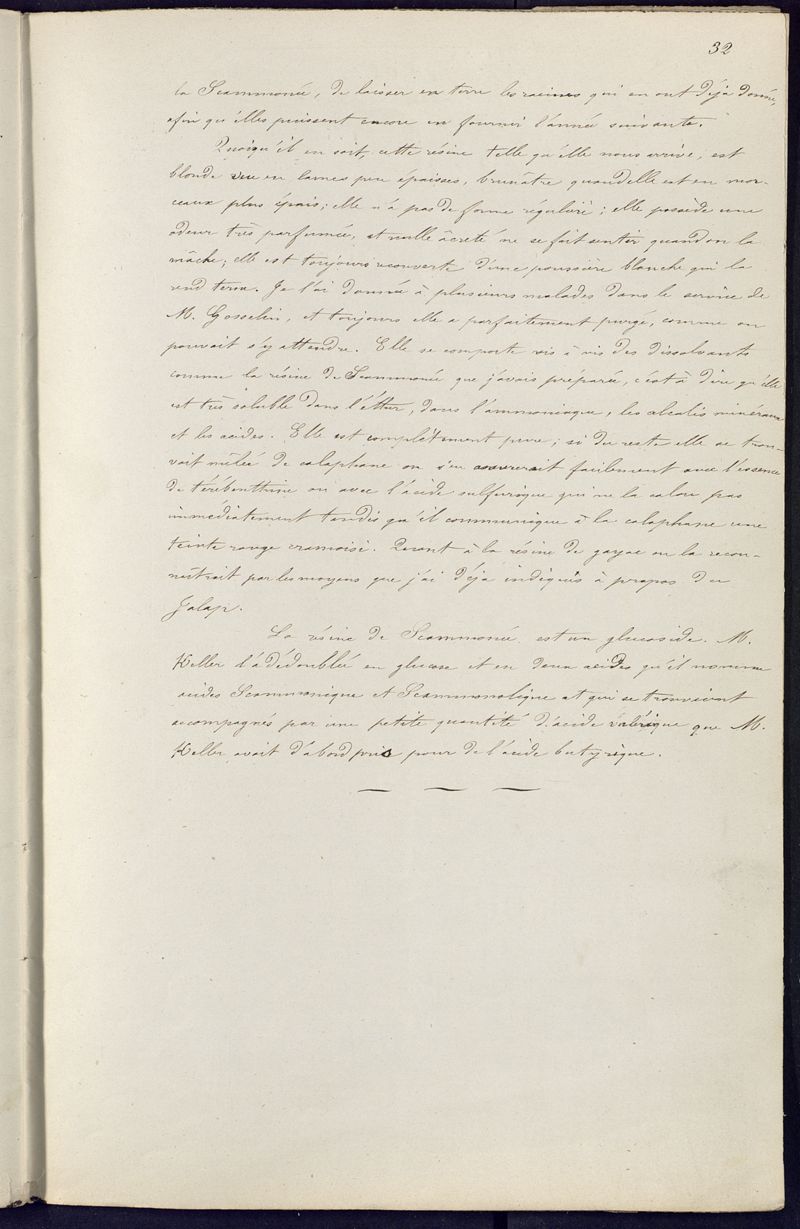 32
la Scammonée, de laisser en terre les racines qui en ont déjà donné,
afin qu'elles puissent encore en fournir l'année suivante.
Quoiqu'il en soit, cette résine telle qu'elle nous arrive, est
blonde vue en lames peu épaisses, brunâtre quand elle est en mor-
ceaux plus épais; elle n'a pas de forme régulière; elle possède une
odeur très parfumée, et nulle âcreté ne se fait sentir quand on la
mâche; elle est toujours recouverte d'une poussière blanche qui la
rend terne. Je l'ai donnée à plusieurs malades dans le service de
M. Gosselin, et toujours elle a parfaitement purgé, comme on
pouvait s'y attendre. Elle se comporte vis à vis des dissolvants
comme la résine de Scammonée que j'avais préparée, c'est à dire qu'elle
est très soluble dans l'éther, dans l'ammoniaque, les alcalis minéraux
et les acides. Elle est complètement pure; si du reste elle se trou-
vait mêlée de colophane on s'en assurerait facilement avec l'essence
de térébenthine ou avec l'acide sulfurique qui ne la colore pas
immédiatement tandis qu'il communique à la colophane une
teinte rouge cramoisi. Quant à la résine de gayac on la recon-
naîtrait par les moyens que j'ai déjà indiqués à propos du
Jalap.
La résine de Scammonée est un glucoside. M.
Keller l'a dédoublée en glucose et en deux acides qu'il nomme
acides Scammonique et Scammonolique et qui se trouvaient
accompagnés par une petite quantité d'acide valérique que M.
Keller avait d'abord pris pour de l'acide butyrique.